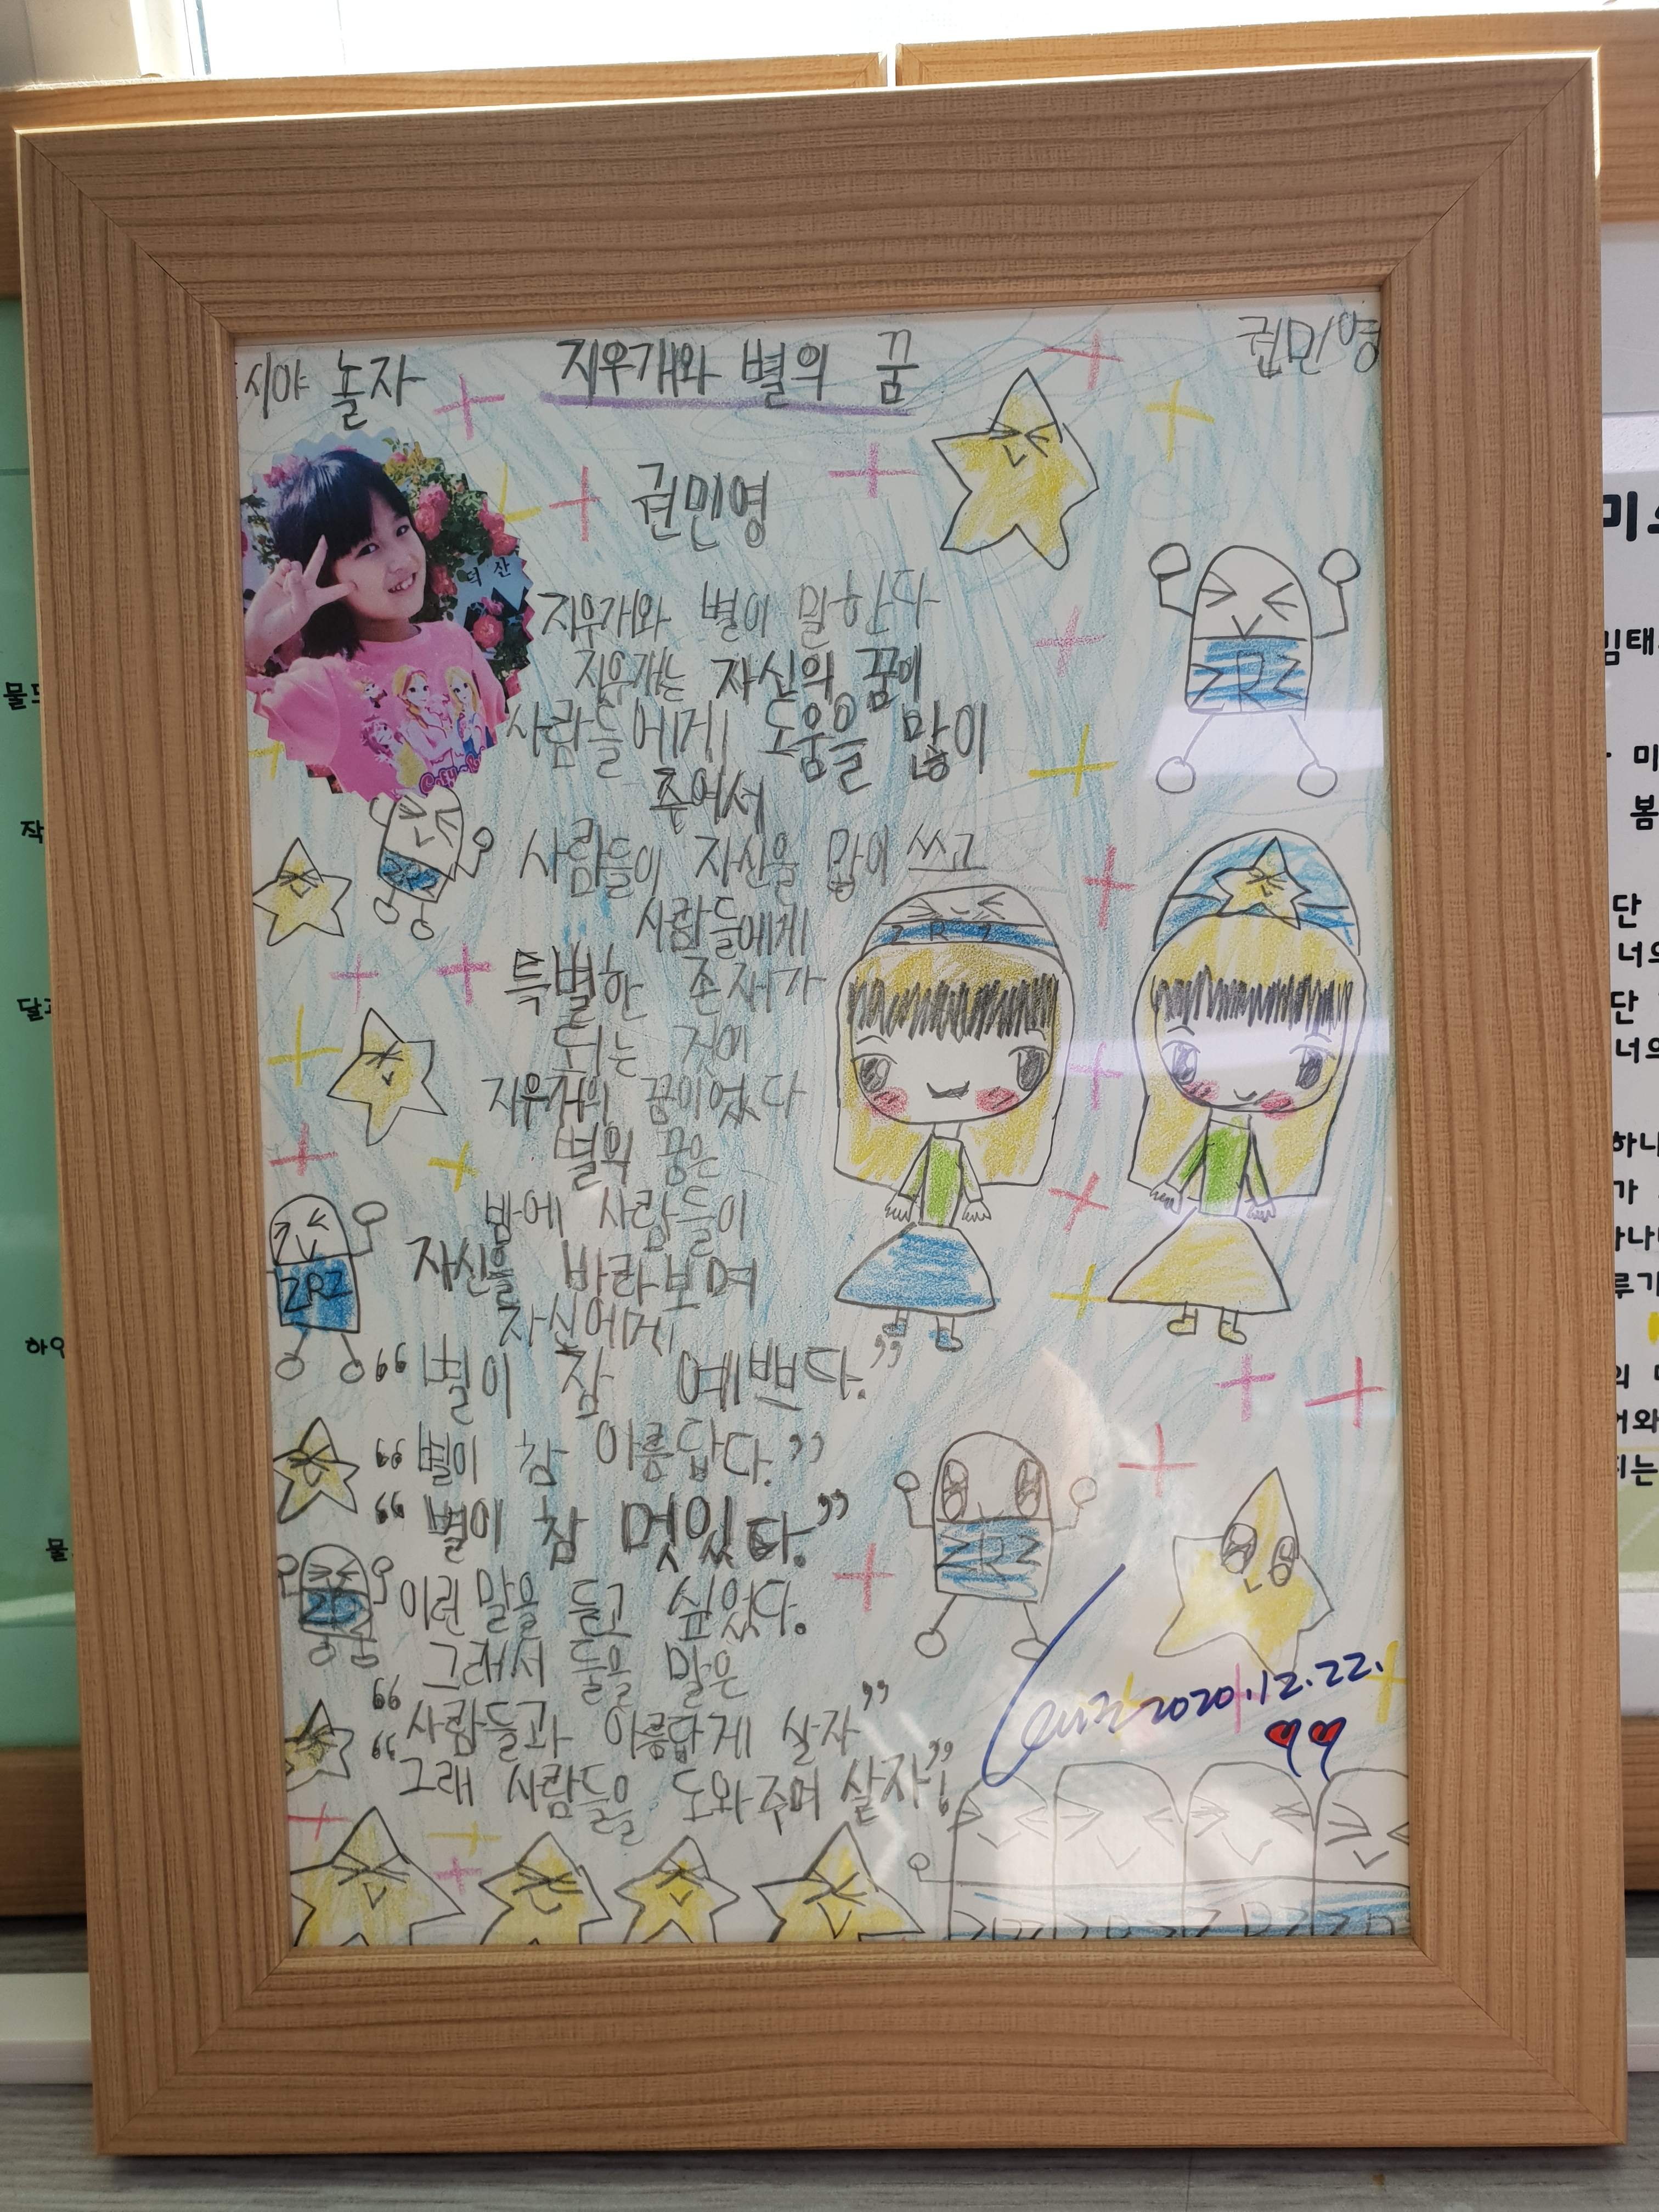 시야 놀자
지우개와 별의 꿈
권민영
권민영
덕산
지우개와 별이 말한다
지우개는 자신의 꿈이
사람들에게 도움을 많이
주어서
사람들이 자신을 많이 쓰고
사람들에게
특별한 존재가
되는 것이
지우개의 꿈이었다
별의 꿈은
밤에 사람들이
자신을 바라보며
자신에게
"별이 참 예쁘다."
"별이 참 아름답다."
"별이 참 멋있다."
이런 말을 듣고 싶었다.
그래서 둘을 말은
"사람들과 아름답게 살자"
"그래 사람들을 도와주며 살자!"
2020.12.22.
ZRZ
ZRZ
ZRZ
ZRZ
ZRZ
물
작
하
물
미
임태
미
봄
단
너의
단
너의
하나
가
루
의
어와
지는